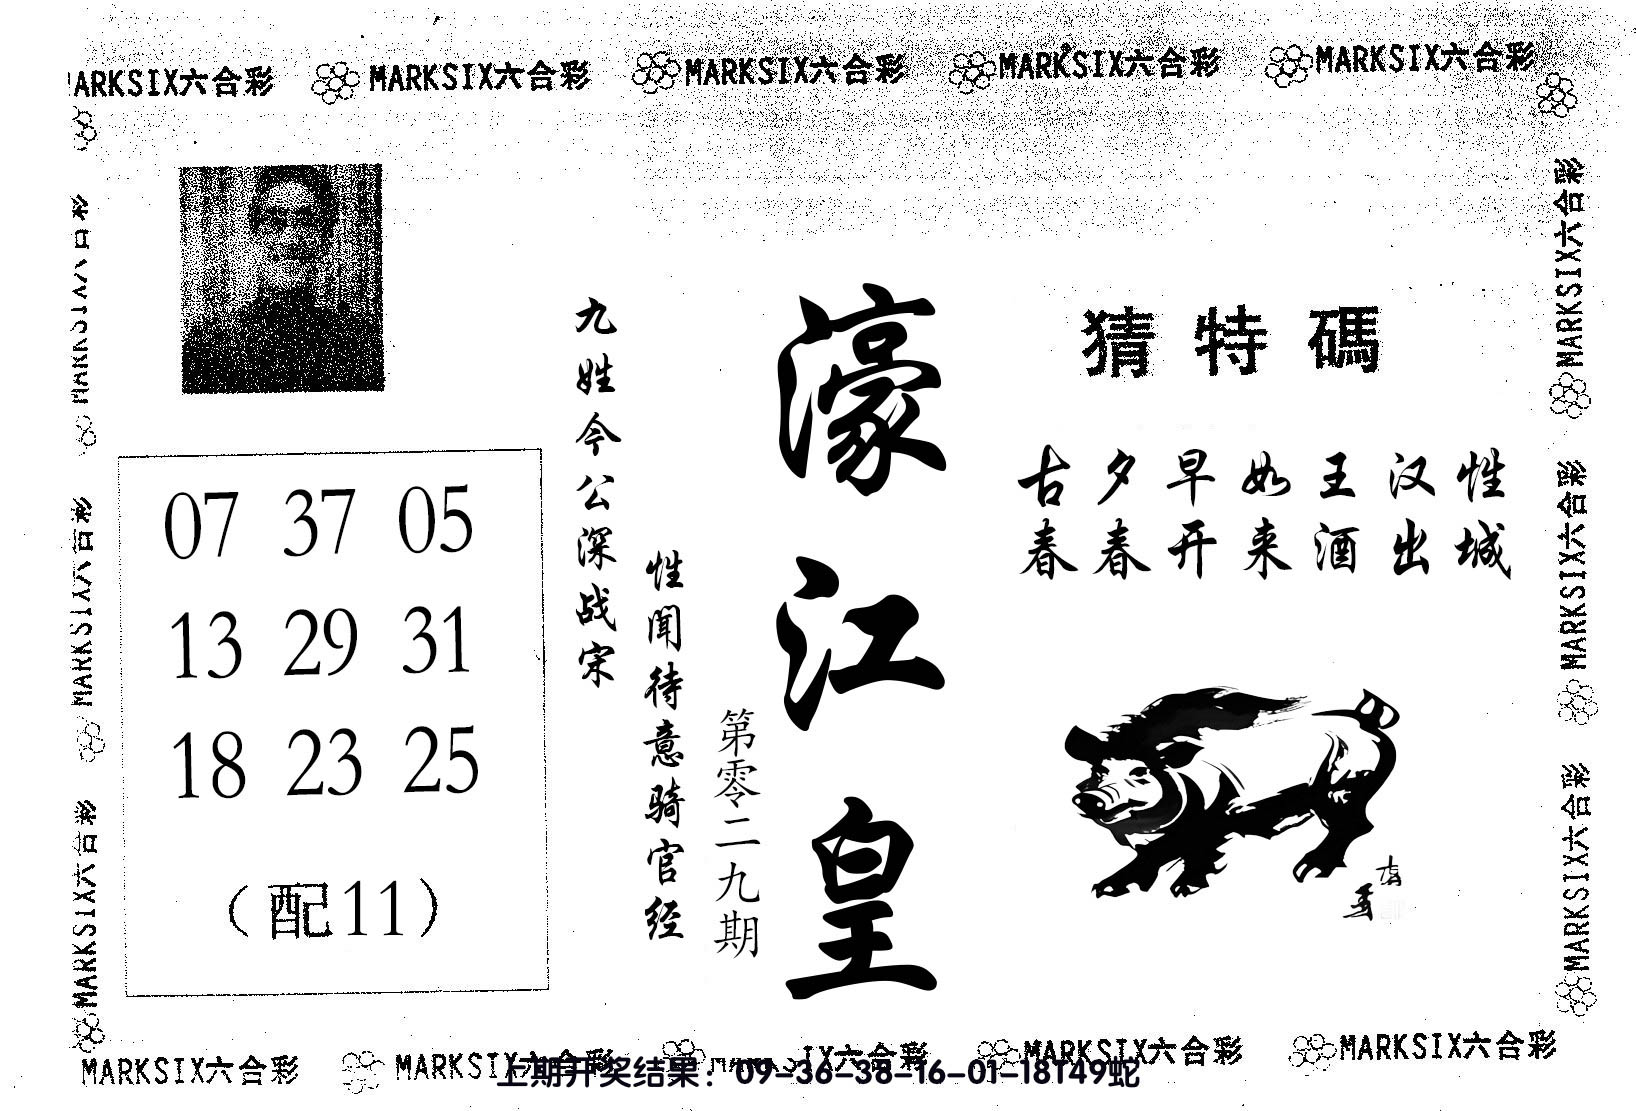 MARKSIX六合彩 MARKSIX六合彩 MARKSIX六合彩 MARKSIX六合彩 MARKSIX六合彩
猜特碼
古夕早如王汉性
春春开来酒出城
濠江皇
第零二九期
九姓今公深战宋
性闻待意骑官经
07 37 05
13 29 31
18 23 25
（配11）
MARKSIX六合彩
MARKSIX六合彩
MARKSIX六合彩
MARKSIX六合彩
MARKSIX六合彩
MARKSIX六合彩
MARKSIX六合彩 MARKSIX六合彩 IX六合彩 MARKSIX六合彩 MARKSIX六合彩
上期开奖结果：09-36-38-16-01-18T49蛇